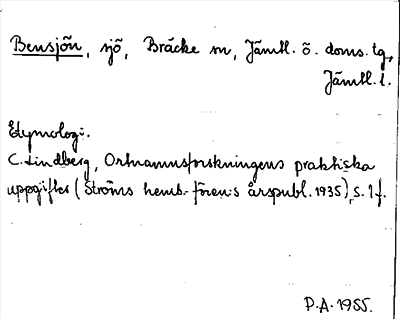 Bensjön, sjö, Bräcke sn, Jämtl. ö. doms. tg,
Jämtl. l.
Etymolog:.
C. Lindberg, Ortnamnsforskningens praktiska
uppgifter (Ströms hemb.-fören:s årspubl. 1935), s. 7 f.
P.A. 1955.